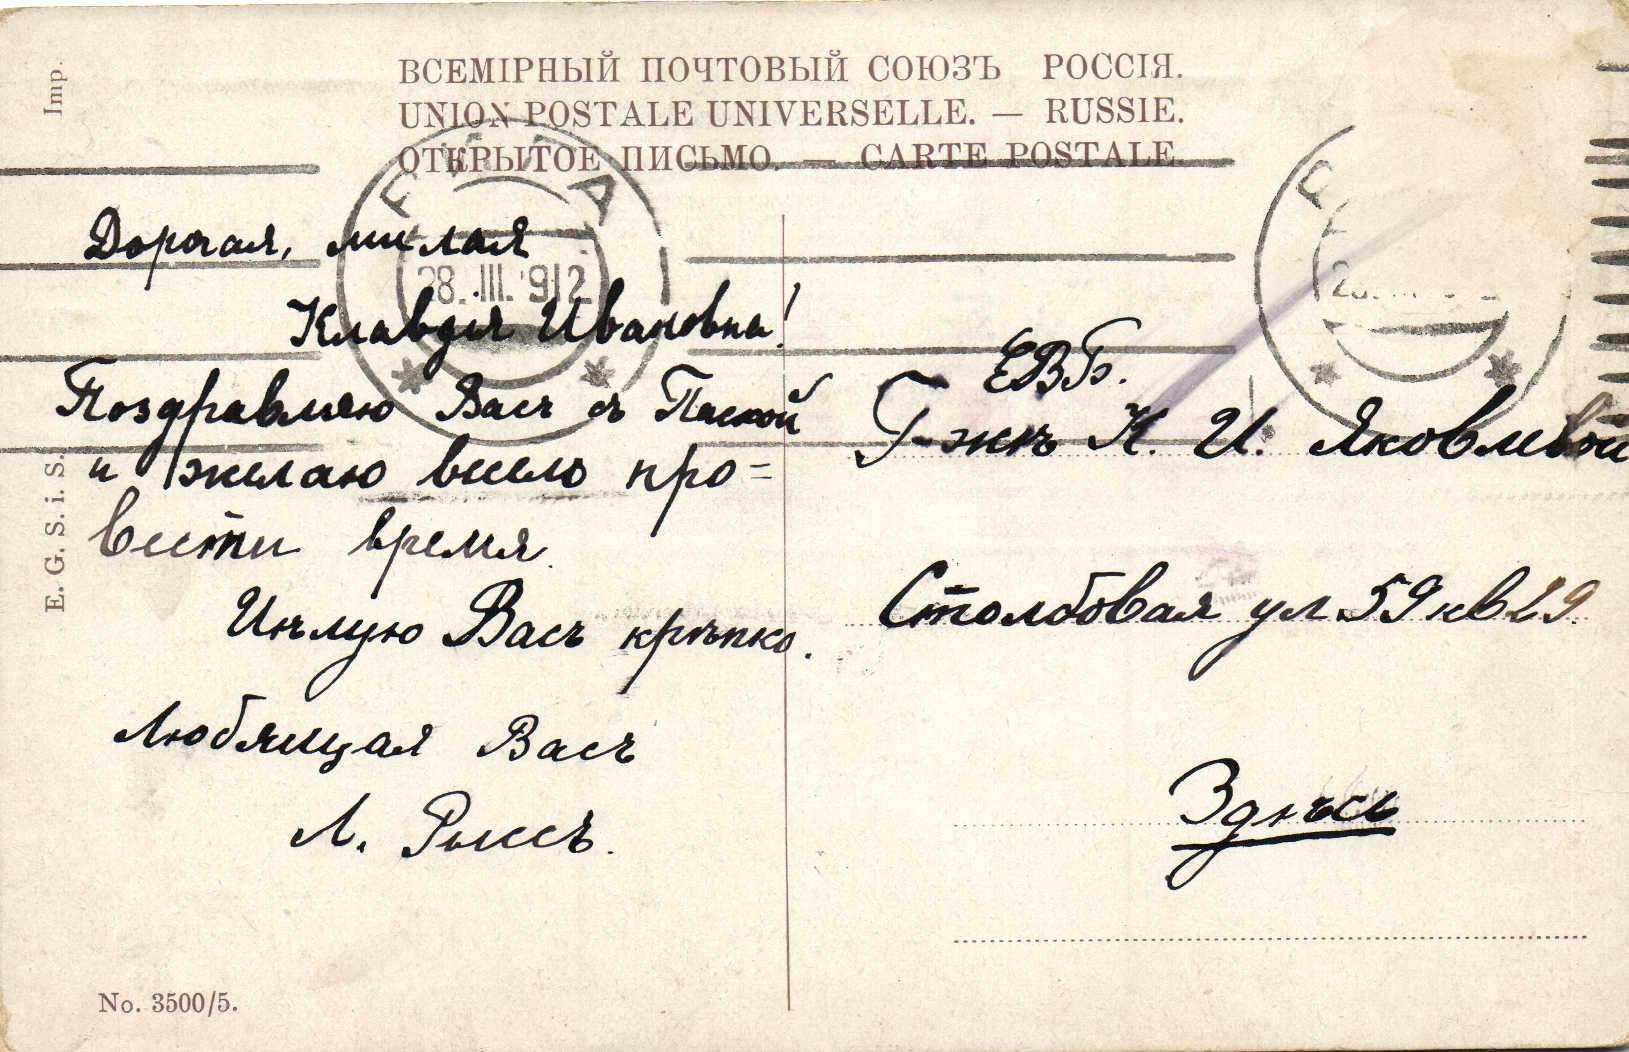 ВСЕМІРНЫЙ ПОЧТОВЫЙ СОЮЗЪ РОССІЯ.
UNION POSTALE UNIVERSELLE. — RUSSIE.
ОТКРЫТОЕ ПИСЬМО. — CARTE POSTALE.
28. III. 912
Дорогая, милая
Клавдія Ивановна!
Поздравляю Васъ съ Пасхой
и желаю весело про=
вести время.
Цѣлую Васъ крѣпко.
Любящая Васъ
Л. Рыссъ.
ЕВБ.
Г-жѣ К. И. Яковлевой
Столбовая ул 59 кв 29.
Здѣсь
Imp.
E. G. S. i. S.
No. 3500/5.